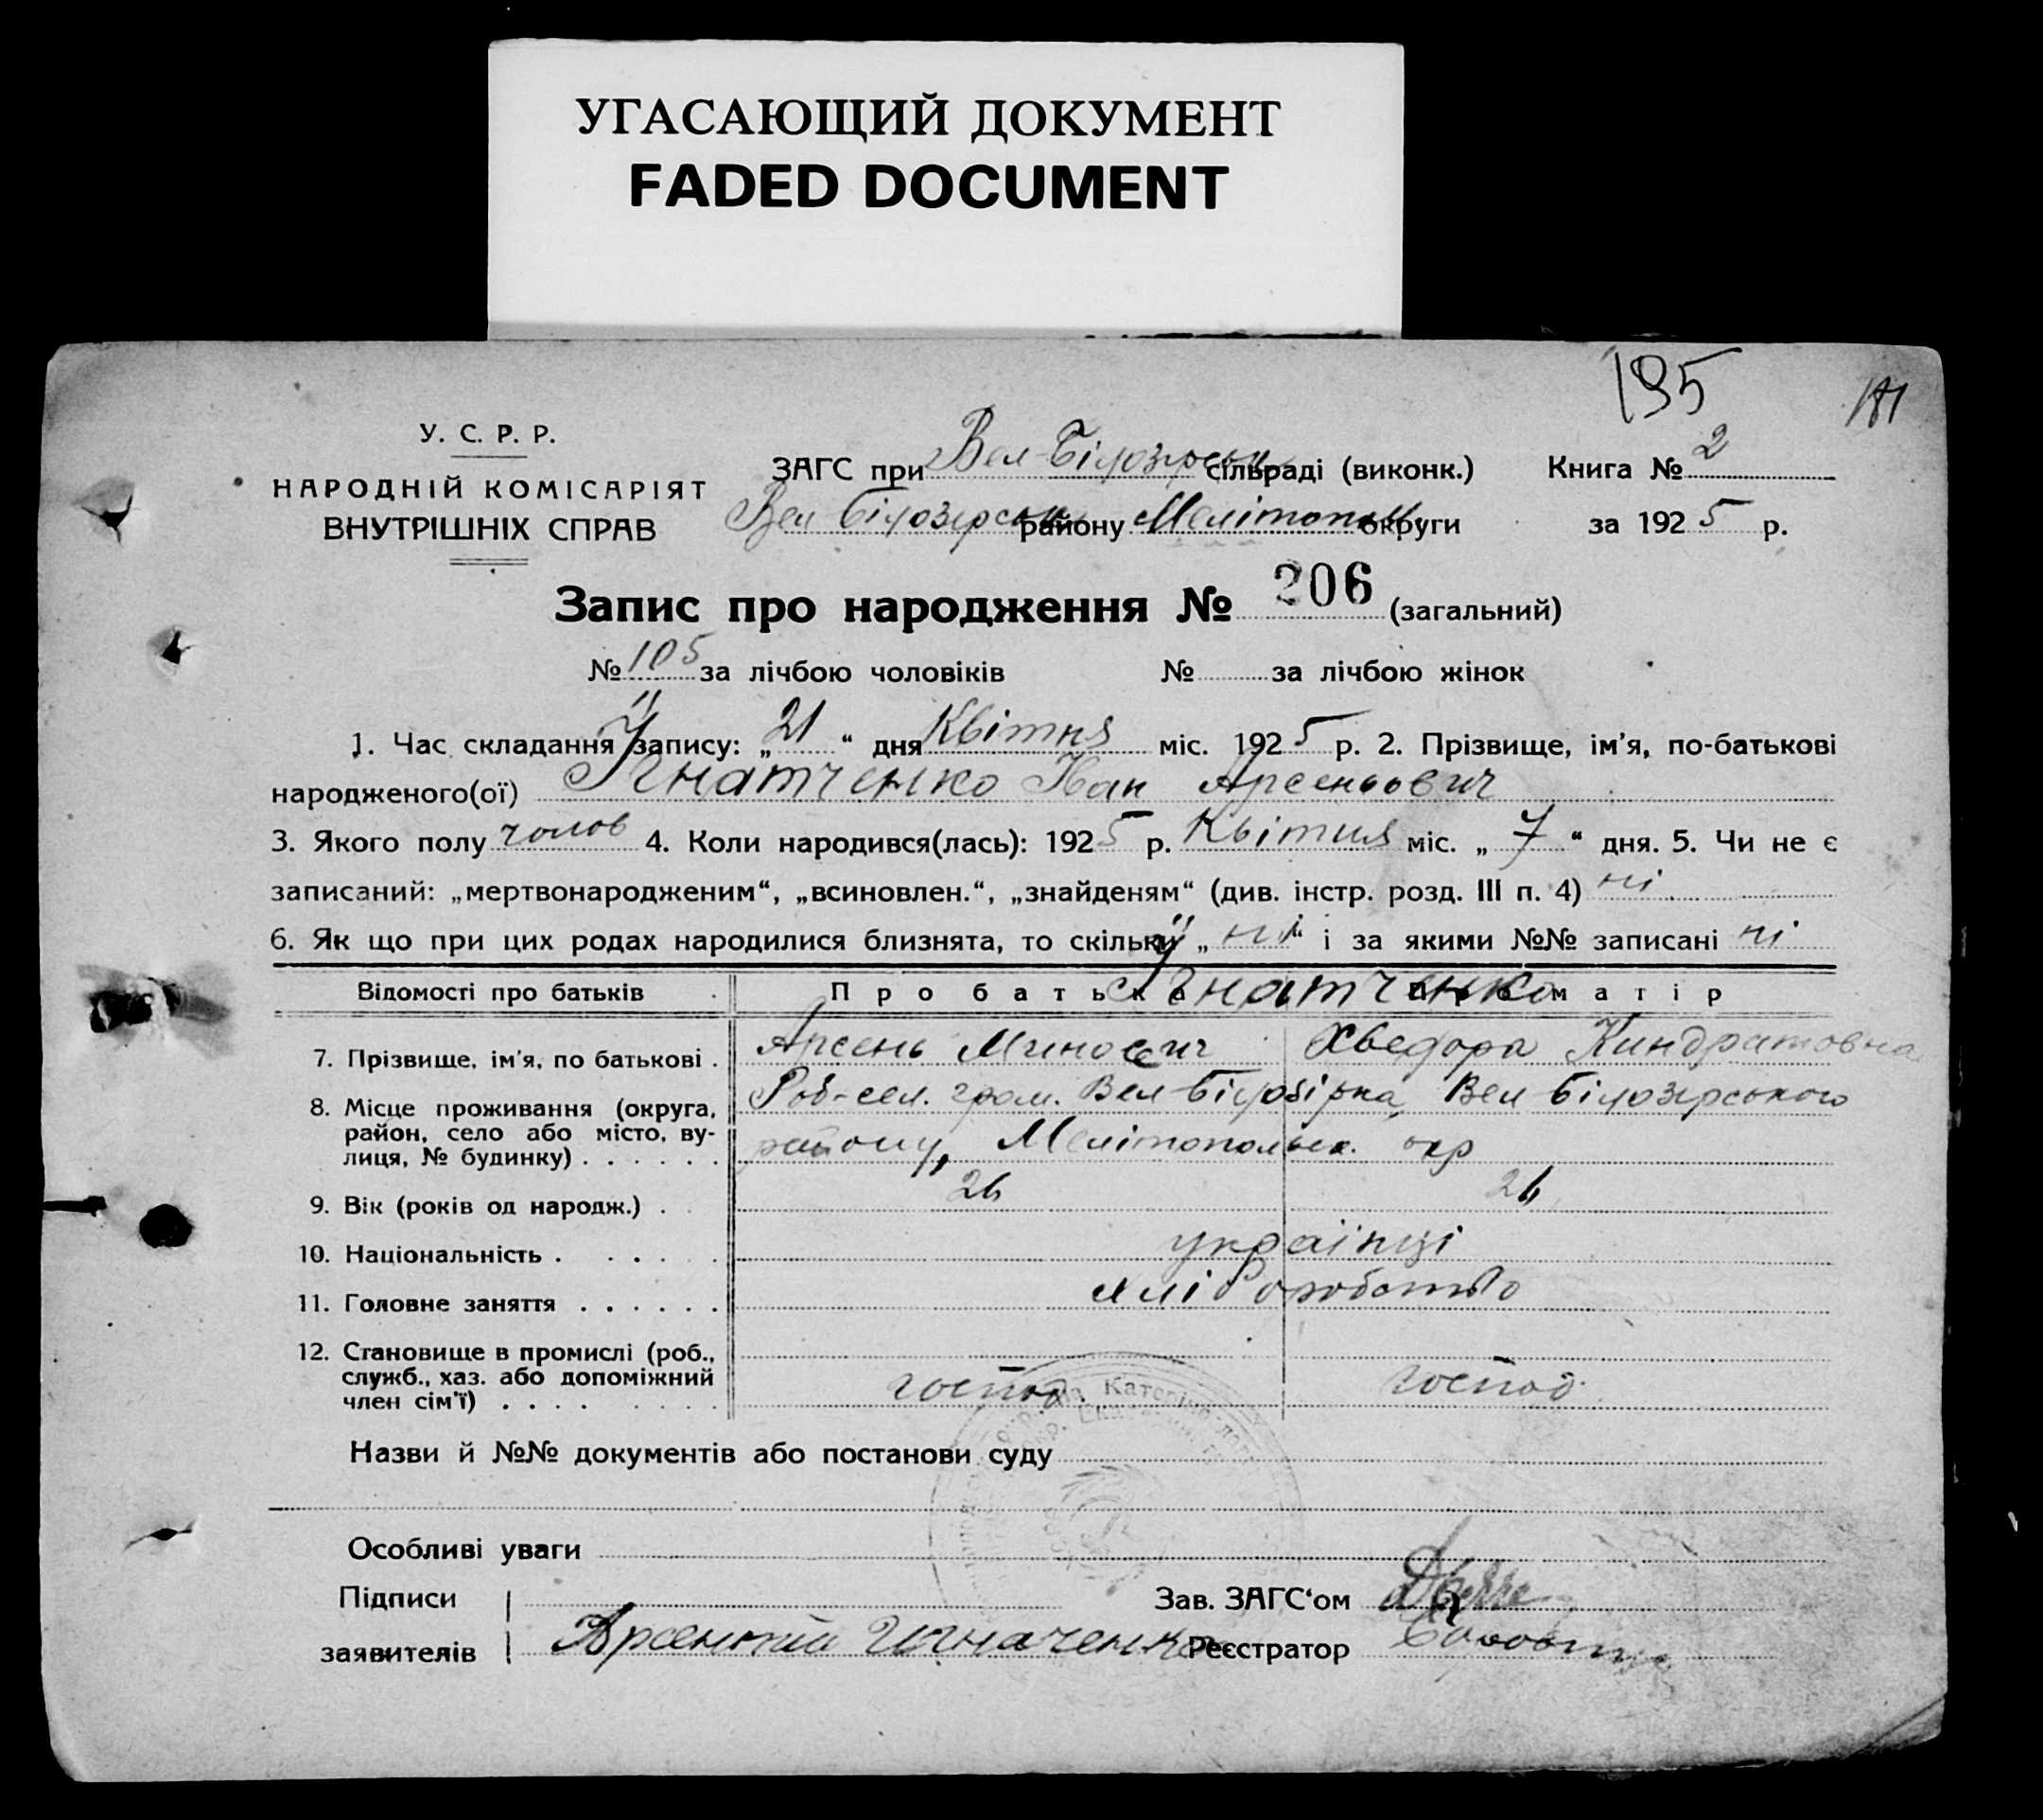 УГАСАЮЩИЙ ДОКУМЕНТ
FADED DOCUMENT
195
У. С. Р. Р.
НАРОДНІЙ КОМІСАРІЯТ
ВНУТРІШНІХ СПРАВ
ЗАГС при Вел-Білозірськ сільраді (виконк.) Книга № 2
Вел Білозірськ району Мелітопол. округи за 1925 р.
Запис про народження № 206 (загальний)
№ 105 за лічбою чоловіків № за лічбою жінок
1. Час складання запису: „21“ дня Квітня міс. 1925 р. 2. Прізвище, ім'я, по-батькові
народженого(ої) Їгнатченко Іван Арсеньович
3. Якого полу чолов 4. Коли народився(лась): 1925 р. Квітня міс. „7“ дня. 5. Чи не є
записаний: „мертвонародженим“, „всиновлен.“, „знайденям“ (див. інстр. розд. III п. 4) ні
6. Як що при цих родах народилися близнята, то скільки „ні“ і за якими №№ записані ні
Відомості про батьків Про батька Про матір
Їгнатченко
7. Прізвище, ім'я, по батькові . Арсень Миносвич Хведора Киндратовна
8. Місце проживання (округа, район, село або місто, вулиця, № будинку) . . . . . . Роб-сел. гром. Вел-Білозірка, Вел Білозірського
району, Мелітопольськ. окр
9. Вік (років од народж.) . 26 26
10. Національність . . . . . українці
11. Головне заняття . . . . . . хліборобство
12. Становище в промислі (роб., служб., хаз. або допоміжний член сім'ї) . . . . господ. господ.
Назви й №№ документів або постанови суду
Особливі уваги
Підписи Зав. ЗАГС'ом
заявителів Арсентий Игначенко Реєстратор